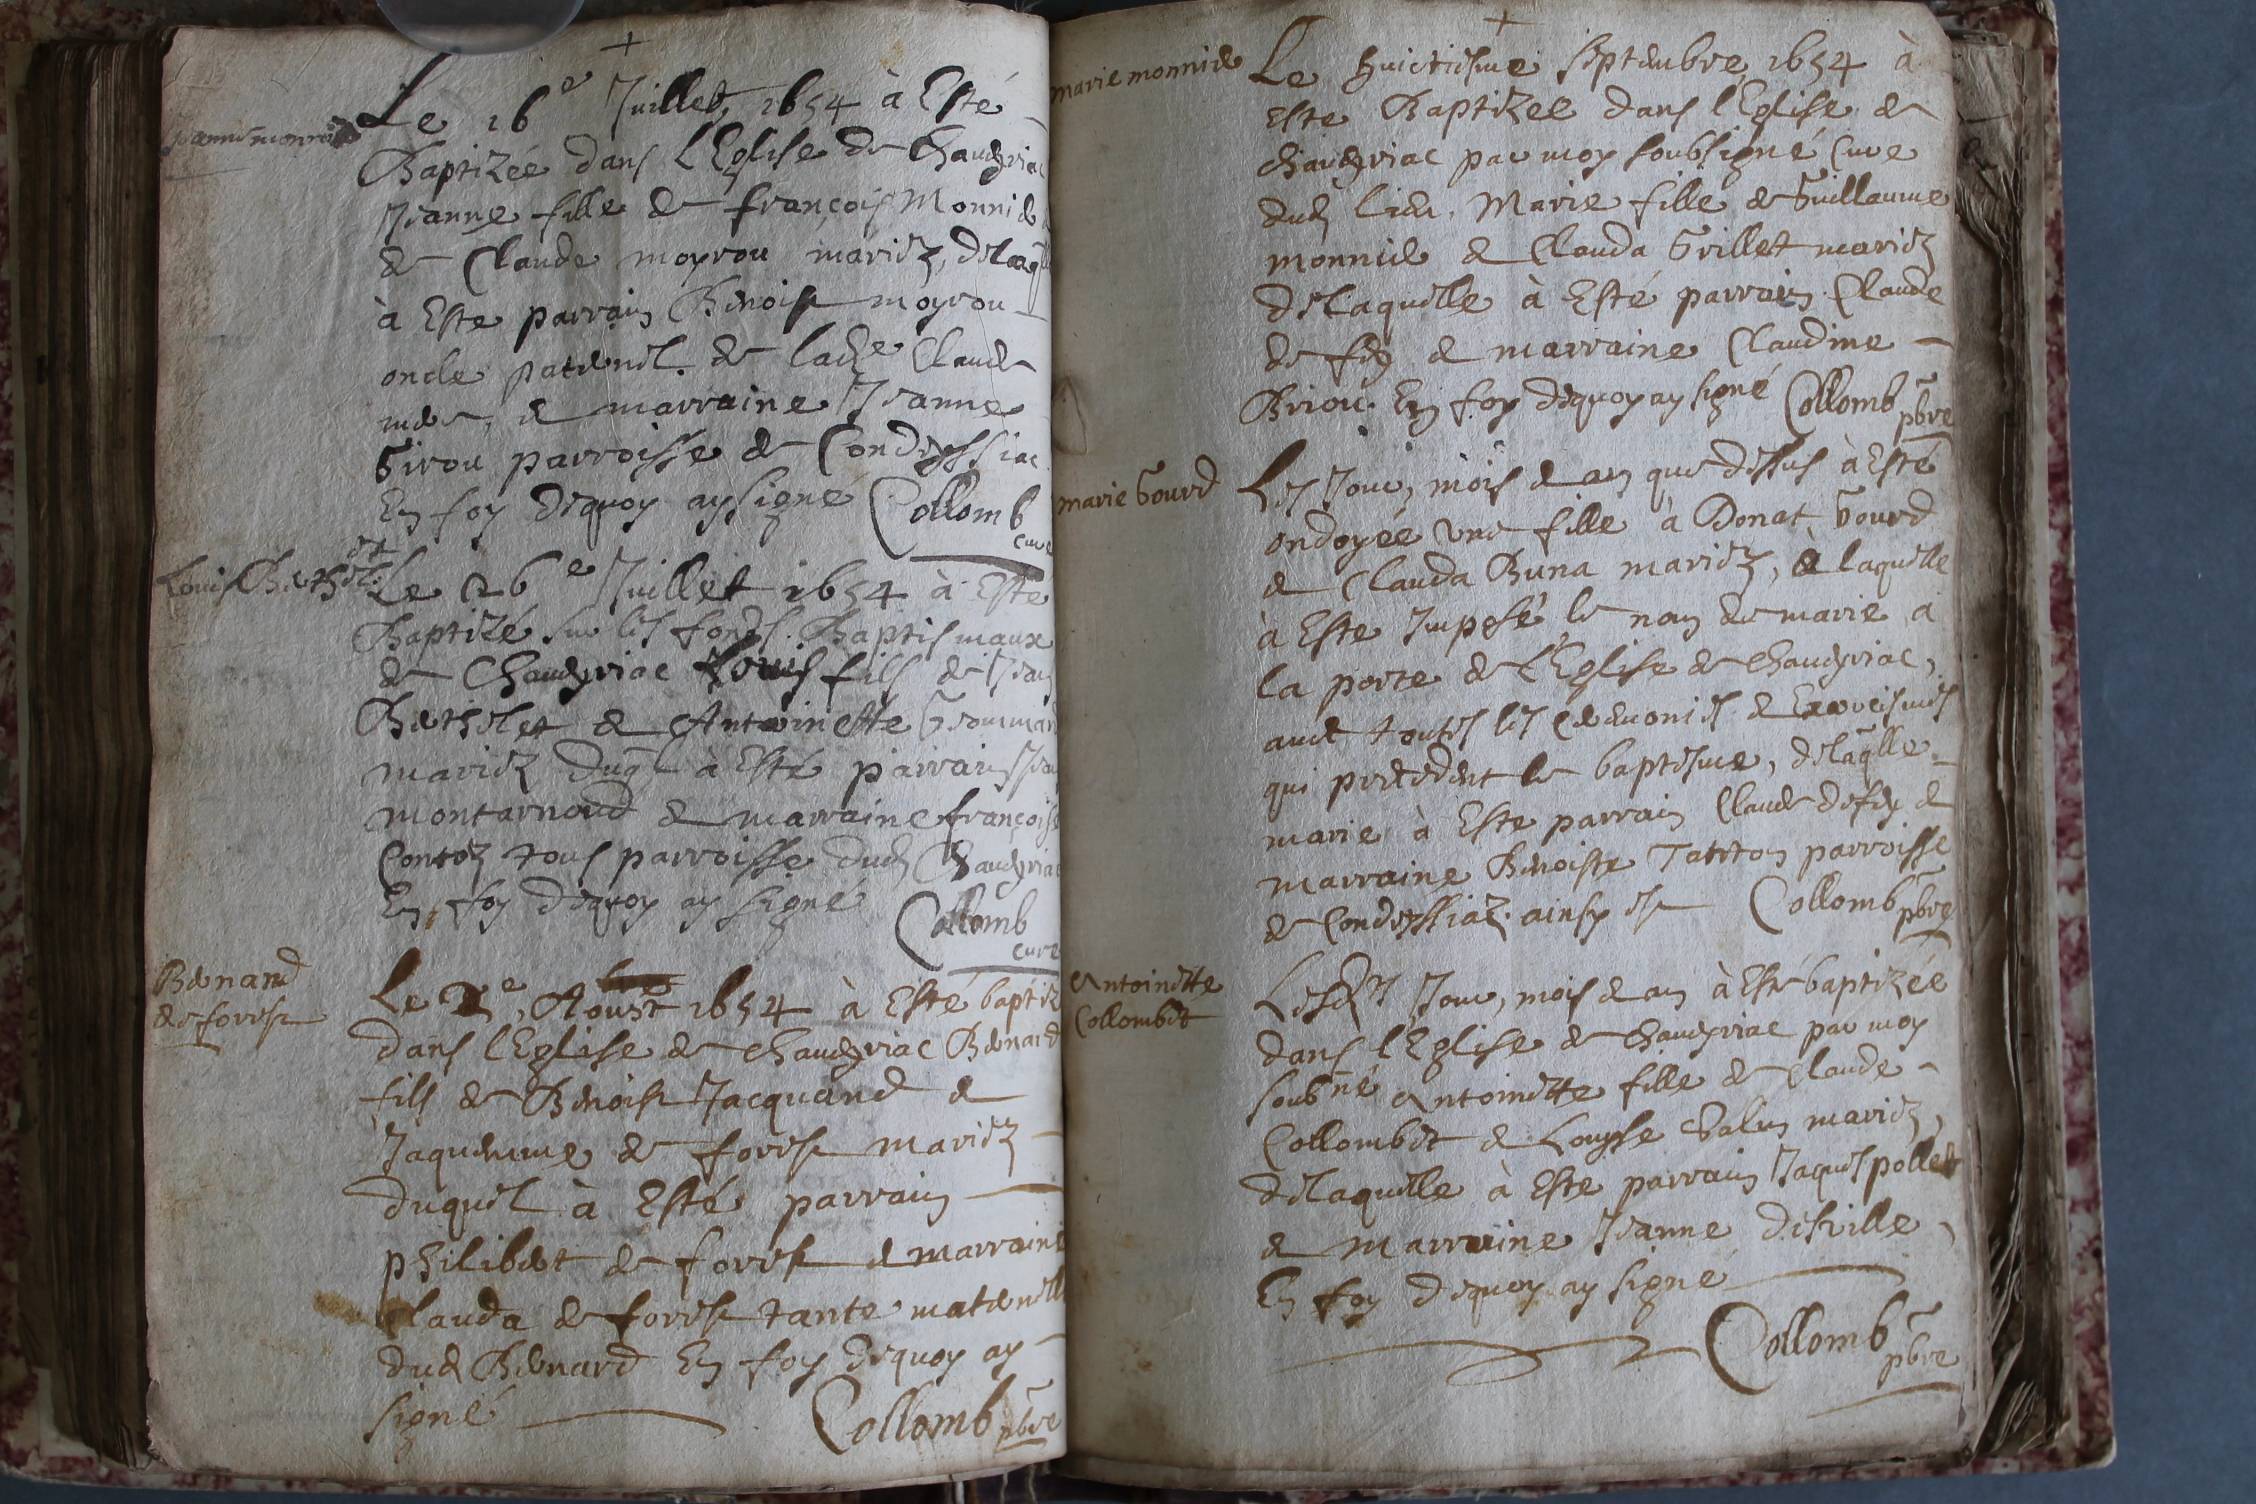 Le 16e Juillet, 1654 à Esté
Baptizée dans l'Eglise de Chaveyriac
Jeanne fille de françois Monnier
& Claude moyrou mariez, delaqlle
à Este parrain Benoist moyrou
oncle paternel de ladte Claude
mere, & marraine Jeanne
Girou parroisse de Condeyssiac
En foy dequoy ay signé Collomb
curé
Louis Berthelet
Le 26e Juillet 1654 à Esté
Baptizé sur les fonds Baptismaux
de Chaveyriac Louis fils de Jean
Berthelet & Antoinette
mariez duql à Esté parrain Jean
montarnoud & marraine françoise
Contez tous parroisse dud Chaveyriac
En foy dequoy ay signé
Collomb
curé
Bernard
de forest
Le e, Aoust 1654 à Esté baptizé
dans l'Eglise de Chaveyriac Bernard
fils de Benoist Jacquand &
Jaquemme de forest mariez
duquel à Esté parrain
philibert de forest & marraine
Clauda de forest tante maternelle
dud Bernard En foy dequoy ay
signé
Collomb pbre
marie monnier
Le huictiesme septembre 1654 à
Este Baptizee dans l'Eglise de
chaveyriac par moy soubsigné Curé
dud lieu, Marie fille de Guillaume
monnier & Clauda Grillet mariez
delaquelle à Esté parrain Claude
de fey & marraine Claudine
Briou En foy dequoy ay signé Collomb pbre
marie Gourd
Les Jour, mois & an que dessus à Esté
ondoyée une fille à Donat Gourd
& Clauda Buna mariez, à laquelle
à Este Imposé le nom de marie à
la porte de l'Eglise de Chaveyriac,
avec toutes les ceremonies & Exorcismes
qui precedent le baptesme, delaqlle
marie à Este parrain Claude defey &
marraine Benoiste Tatton parroisse
de Condeyssiaz ainsy est Collomb pbre
Antoinette
Collombet
Lesd Jour, mois & an à Esté baptizée
dans l'Eglise de Chaveyriac par moy
soubné Antoinette fille de Claude
Collombet & Louyse Valin mariez,
delaquelle à Este parrain Jaques pollet
& Marraine Jeanne desville
En foy dequoy ay signé
Collomb pbre